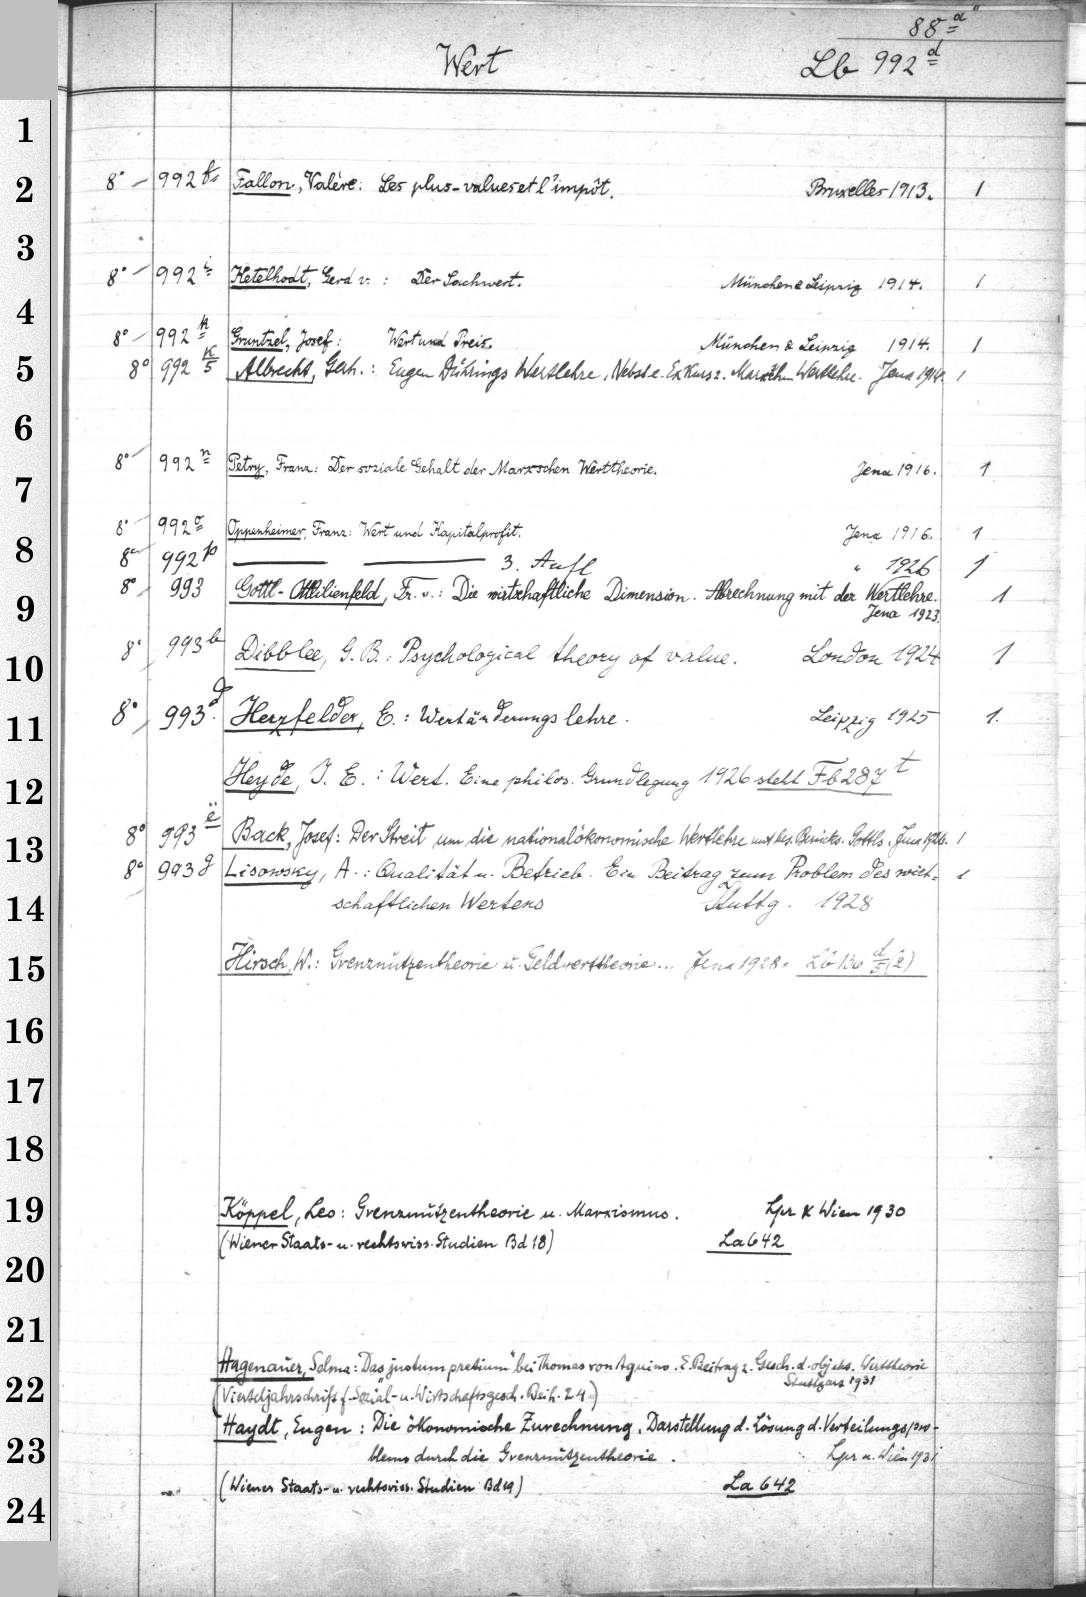 88 a
Wert Lb 992 d
1
2 8° 992 Fallon, Valère: Les plus-values et l'impôt. Bruxelles 1913. 1
3
8° 992 i Ketelhodt, Gerd v.: Der Sachwert. München & Leipzig 1914. 1
4
8° 992 k Gruntzel, Josef: Wert und Preis. München & Leipzig 1914. 1
5 8° 992 k/5 Albrecht, Gerh.: Eugen Dührings Wertlehre, Nebst e. Exkurs z. Marxschen Wertlehre. Jena 1914. 1
6
8° 992 n Petry, Franz: Der soziale Gehalt der Marxschen Werttheorie. Jena 1916. 1
7
8° 992 o Oppenheimer, Franz: Wert und Kapitalprofit. Jena 1916. 1
8 8° 992 p — — 3. Aufl " 1926 1
8° 993 Gottl-Ottlilienfeld, Fr. v.: Die wirtschaftliche Dimension. Abrechnung mit der Wertlehre. 1
9 Jena 1923.
10 8° 993 b Dibblee, G. B.: Psychological theory of value. London 1924 1
11 8° 993 d. Herzfelder, E.: Wertänderungslehre. Leipzig 1925 1.
12 Heyde, J. E.: Wert. Eine philos. Grundlegung 1926 steht Fb 287 t
13 8° 993 ë Back, Josef: Der Streit um die nationalökonomische Wertlehre mit bes. Berücks. Gottls. Jena 1926. 1
8° 993 g Lisowsky, A.: Qualität u. Betrieb. Ein Beitrag zum Problem des wirt= 1
14 schaftlichen Wertens Stuttg. 1928
15 Hirsch, W.: Grenznutzentheorie u. Geldwerttheorie... Jena 1928. Lb 130 d/5 (2)
16
17
18
19 Köppel, Leo: Grenznutzentheorie u. Marxismus. Lpz & Wien 1930
(Wiener Staats- u. rechtswiss. Studien Bd 18) La 642
20
21
Hagenauer, Selma: Das "justum pretium" bei Thomas von Aquino. E. Beitrag z. Gesch. d. objekt. Werttheorie
22 Stuttgart 1931
(Vierteljahrschrift f. Sozial- u. Wirtschaftsgesch. Beih. 24)
Haydt, Eugen: Die ökonomische Zurechnung. Darstellung d. Lösung d. Verteilungspro-
23 blems durch die Grenznutzentheorie. Lpz u. Wien 1931
(Wiener Staats- u. rechtswiss. Studien Bd 19) La 642
24